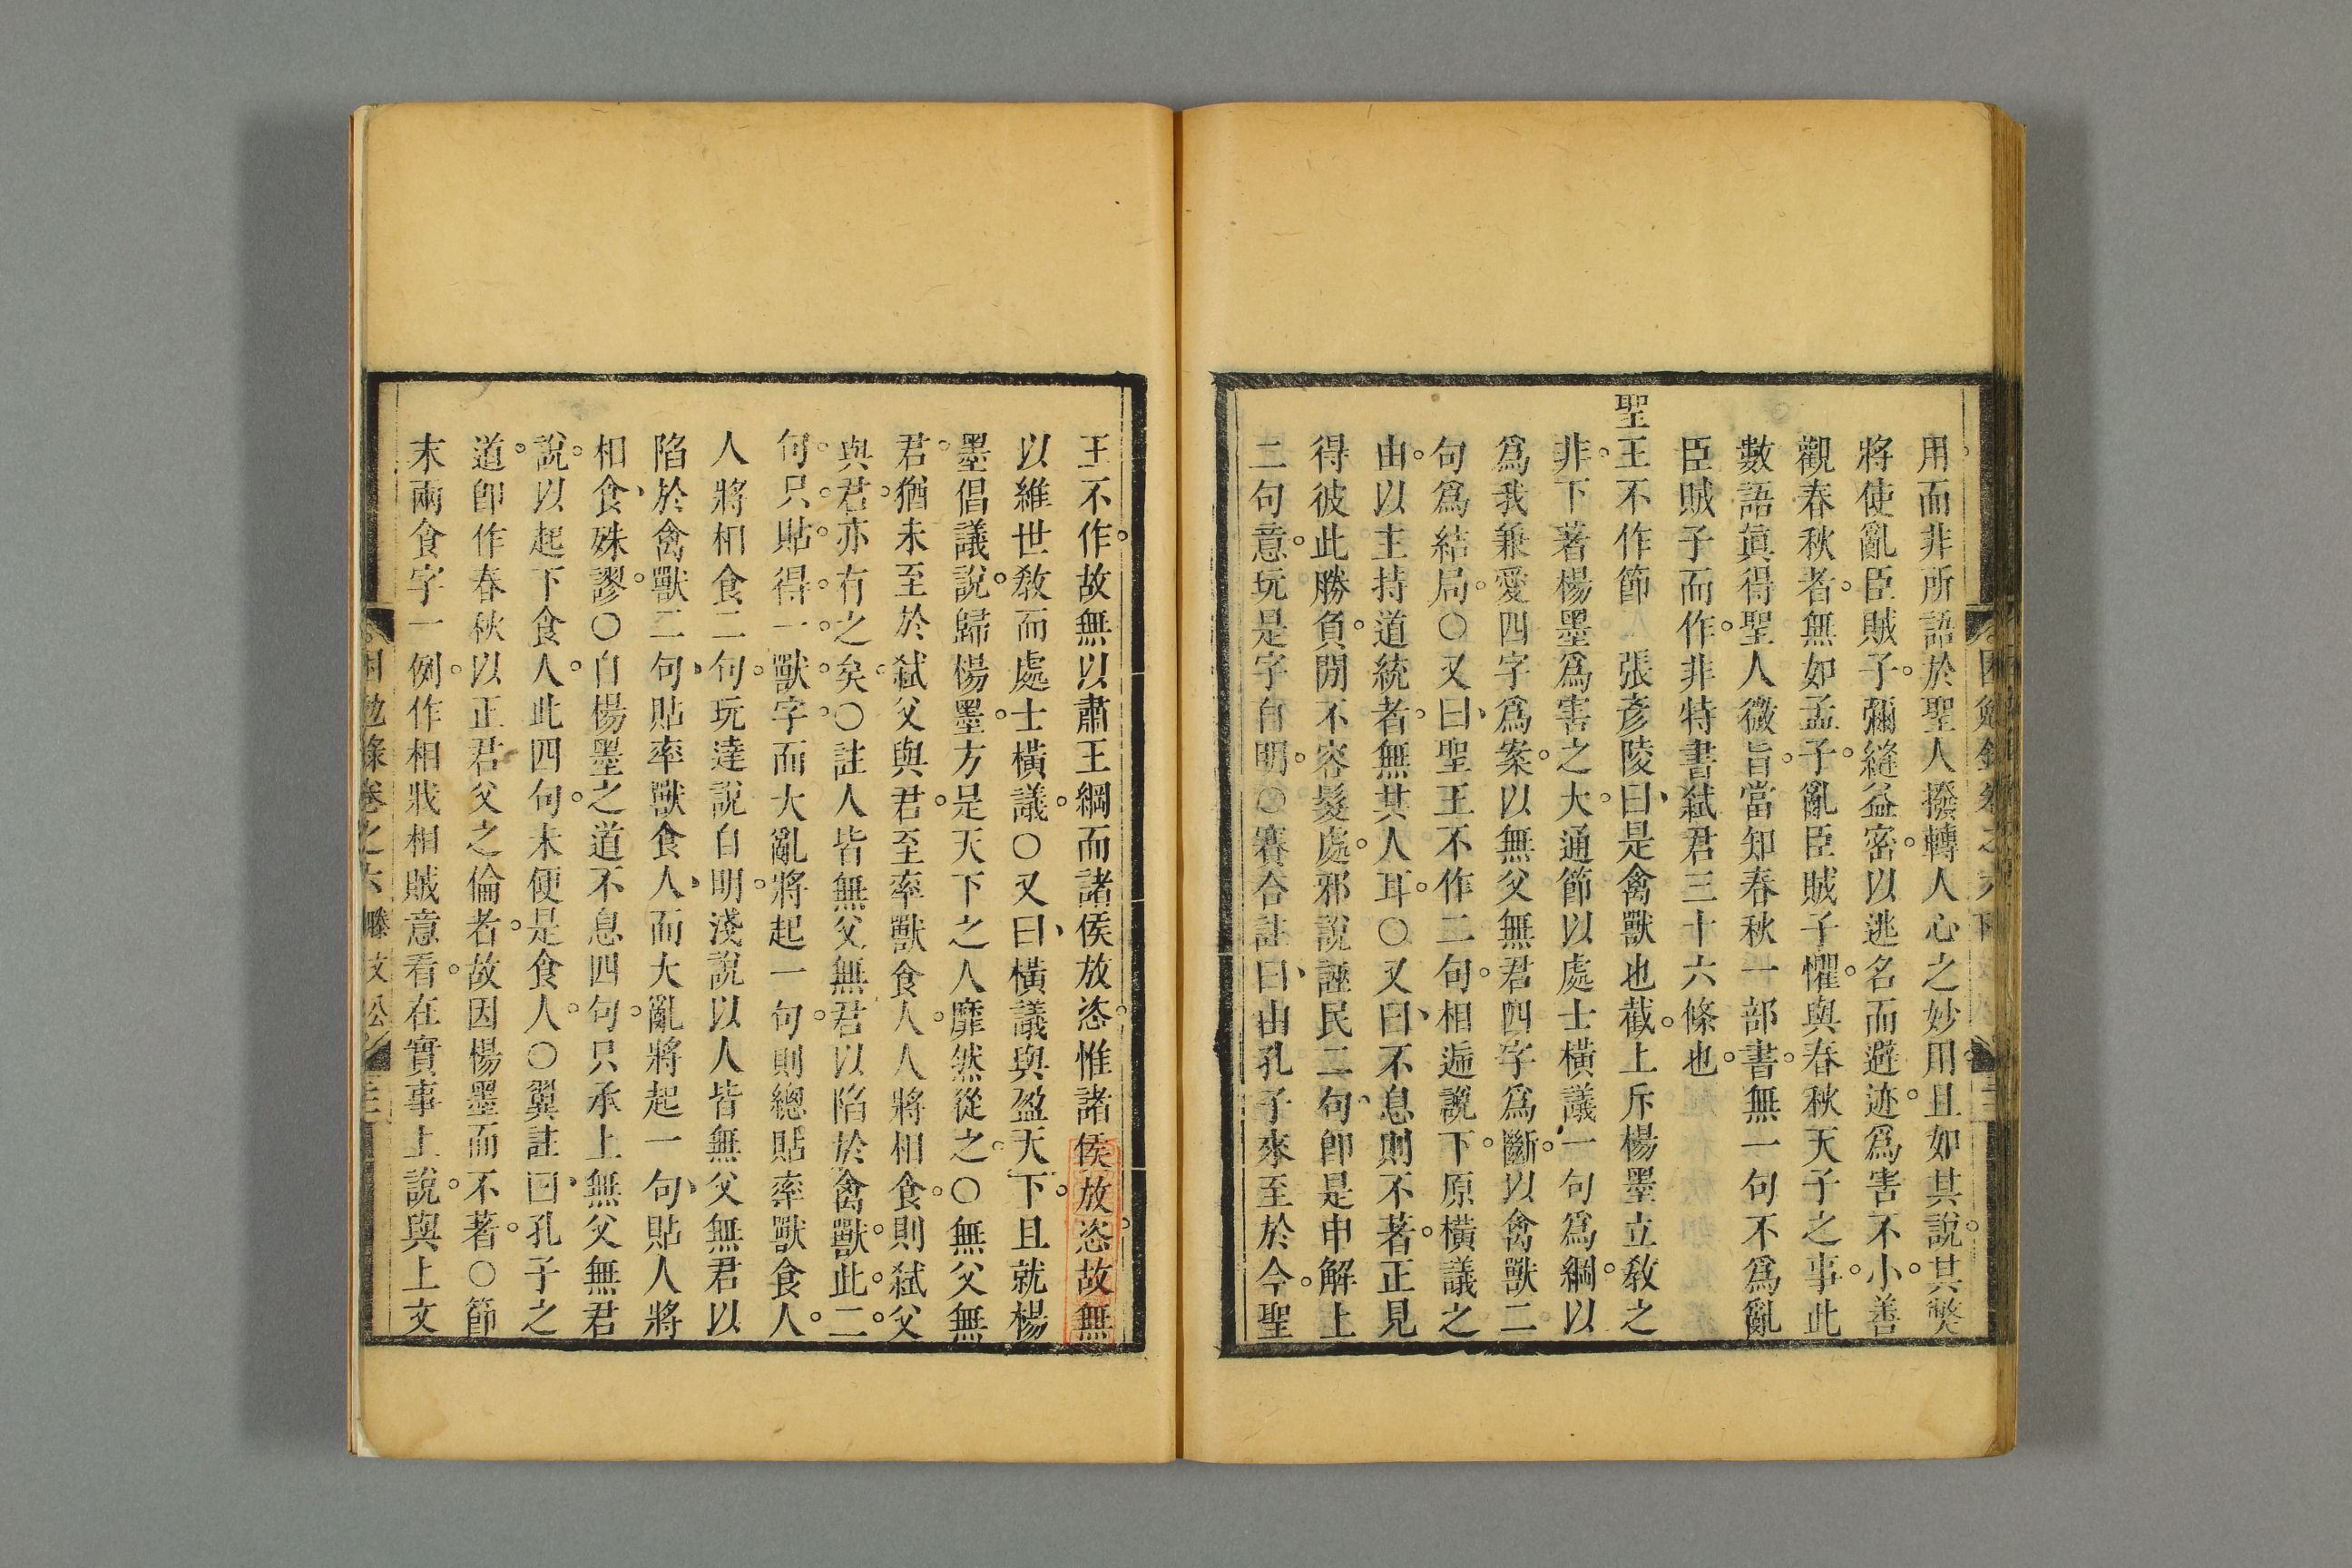 用而非所語於聖人撥轉人心之妙用且如其說其獘
將使亂臣賊子彌縫益密以逃名而避迹為害不小善
觀春秋者無如孟子亂臣賊子懼與春秋天子之事此
數語眞得聖人微旨當知春秋一部書無一句不爲亂
臣賊子而作非特書弑君三十六條也
聖王不作節 張彥陵曰是禽獸也截上斥楊墨立敎之
非下著楊墨爲害之大通節以處士橫議一句爲綱以
爲我兼愛四字爲案以無父無君四字爲斷以禽獸二
句爲結局○又曰聖王不作二句相遞說下原橫議之
由以主持道統者無其人耳○又曰不息則不著正見
得彼此勝負閒不容髮處邪說誣民二句卽是申解上
二句意玩是字自明○賽合註曰由孔子來至於今聖
王不作故無以肅王綱而諸侯放恣惟諸侯放恣故無
以維世敎而處士橫議○又曰橫議與盈天下且就楊
墨倡議說歸楊墨方是天下之人靡然從之○無父無
君猶未至於弑父與君至率獸食人人將相食則弑父
與君亦有之矣○註人皆無父無君以陷於禽獸此二
句只貼得一獸字而大亂將起一句則總貼率獸食人
人將相食二句玩達說自明淺說以人皆無父無君以
陷於禽獸二句貼率獸食人而大亂將起一句貼人將
相食殊謬○自楊墨之道不息四句只承上無父無君
說以起下食人此四句未便是食人○翼註曰孔子之
道卽作春秋以正君父之倫者故因楊墨而不著○節
末兩食字一例作相戕相賊意看在實事上說與上文
困勉錄卷之六 滕文公